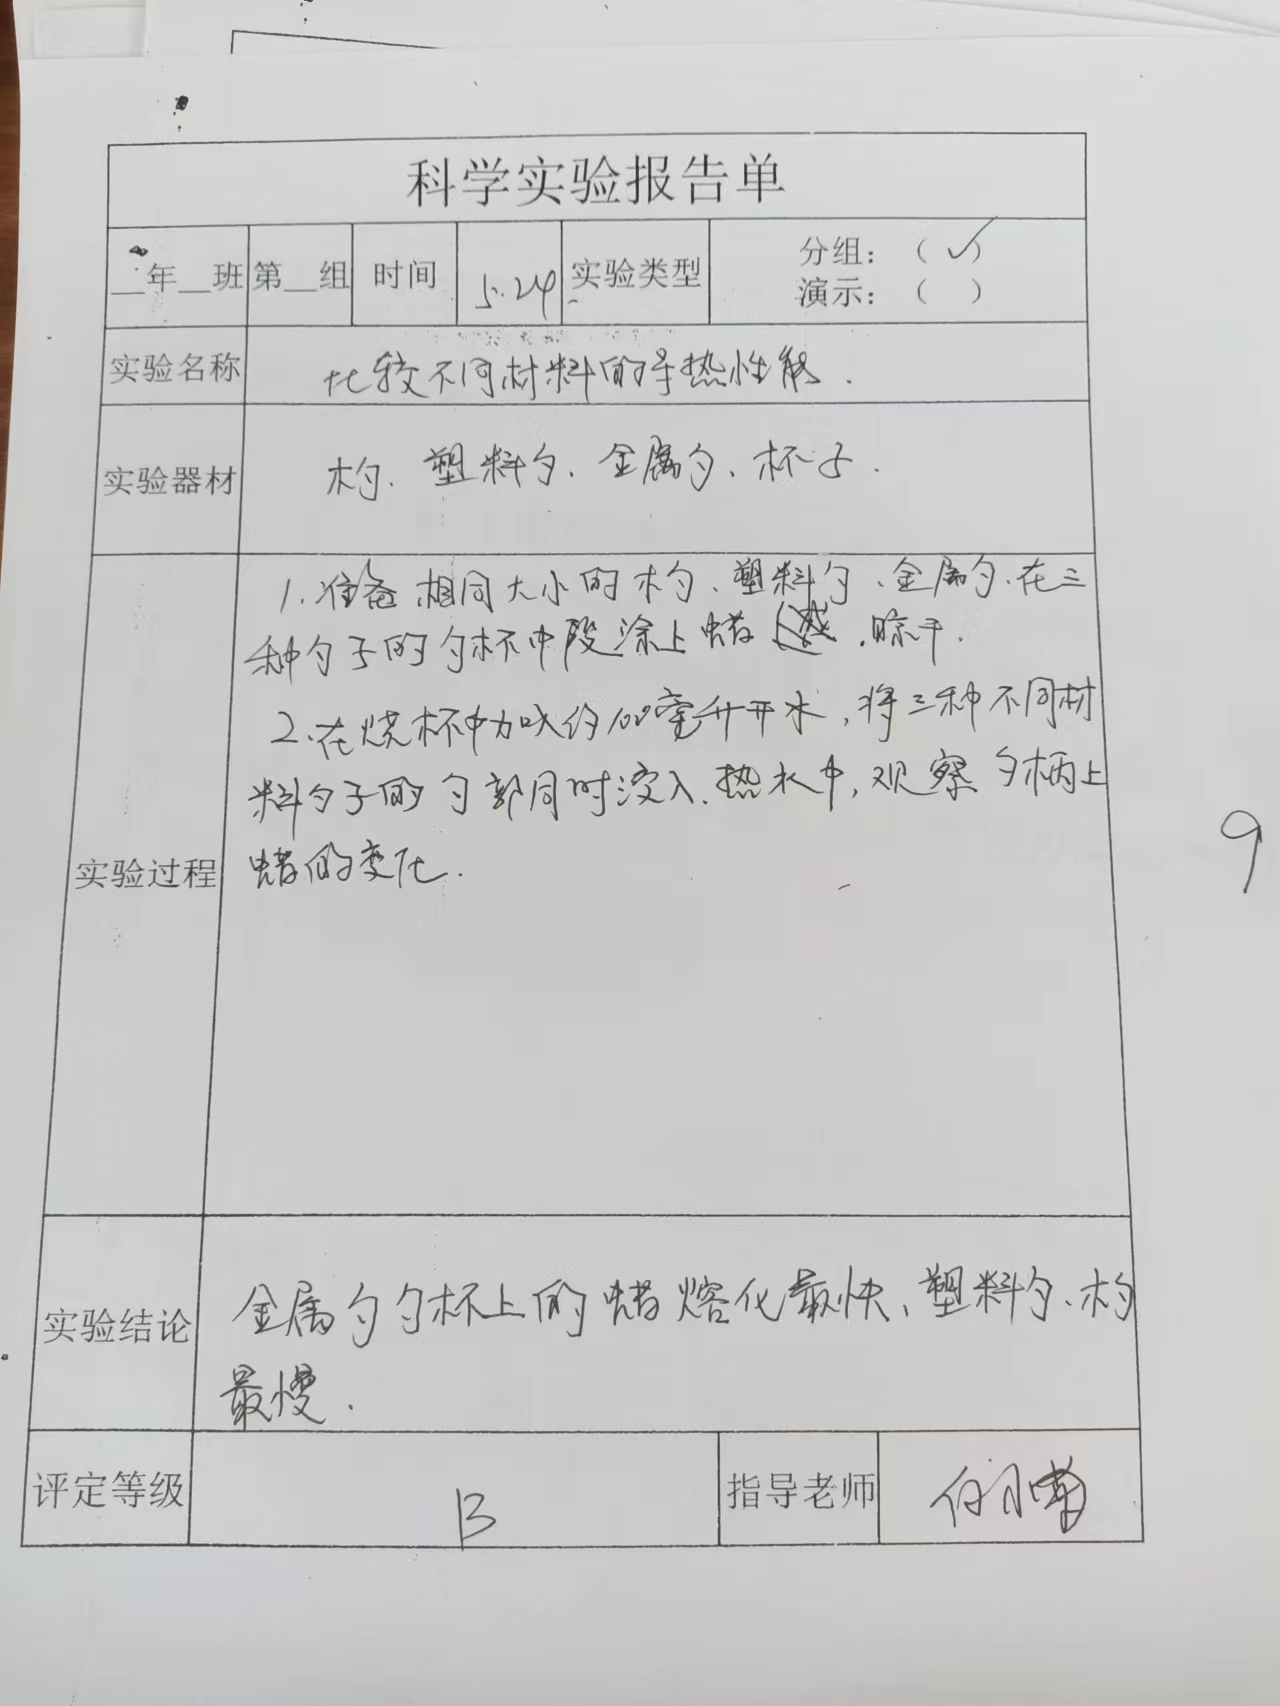 科学实验报告单
__年__班 第__组 时间 5.24 实验类型 分组：（✓）
演示：（ ）
实验名称 比较不同材料的导热性能.
实验器材 木勺、塑料勺、金属勺、杯子.
1.准备相同大小的木勺、塑料勺、金属勺.在三
种勺子的勺杯中段涂上蜡 .晾干.
2.在烧杯中加入约100毫升开水,将三种不同材
料勺子的勺部同时浸入.热水中,观察勺柄上
实验过程 蜡的变化.
9
实验结论 金属勺勺杯上的蜡熔化最快、塑料勺、木勺
最慢.
评定等级 B 指导老师